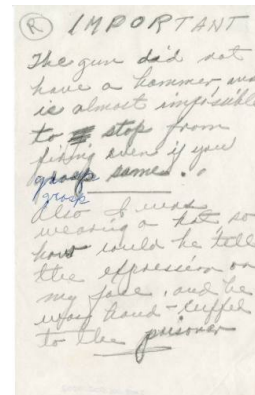 (R) IMPORTANT
The gun did not
have a hammer, and
is almost impossible
to stop from
firing even if you
groop same.
groop
Also I was
wearing a hat, so
how could he tell
the expression on
my face, and he
was hand-cuffed
to the prisoner